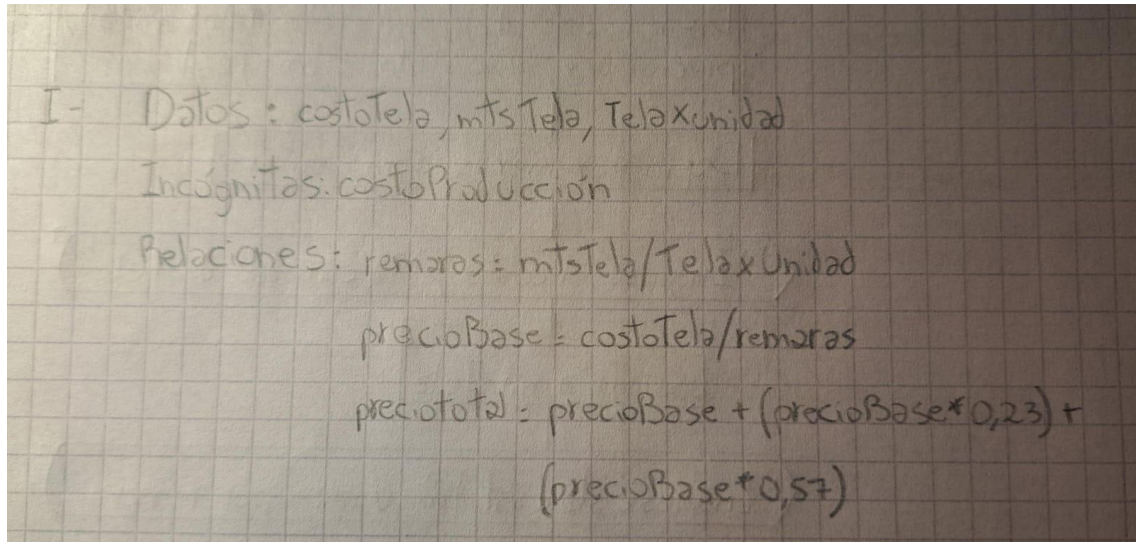 I- Datos: costoTela, mtsTela, TelaxUnidad
Incógnitas: costoProducción
Relaciones: remeras = mtsTela/TelaxUnidad
precioBase = costoTela/remeras
preciototal = precioBase + (precioBase*0,23) +
(precioBase*0,57)